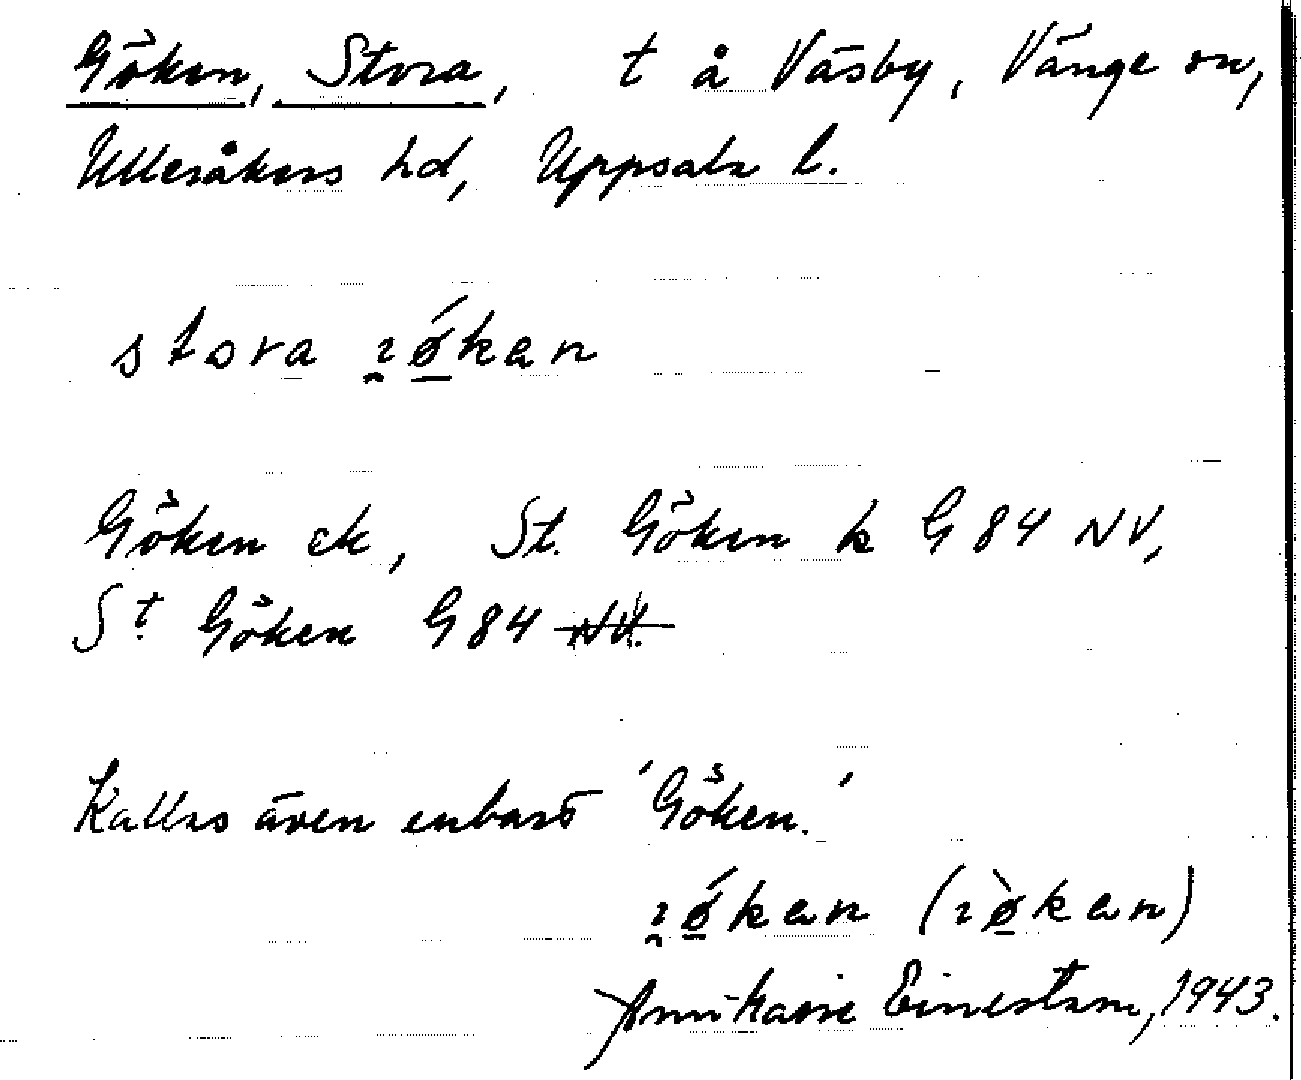 Göken, Stora, t å Väsby, Vänge sn,
Ulleråkers hd, Uppsala l.
stora ɿǿkan
Göken ek, St. Göken k G 84 NV,
St. Göken G 84 NV.
Kallas även enbart 'Göken.'
ɿǿkan (ɿø̀kan)
Ann-Karin Einestam, 1943.